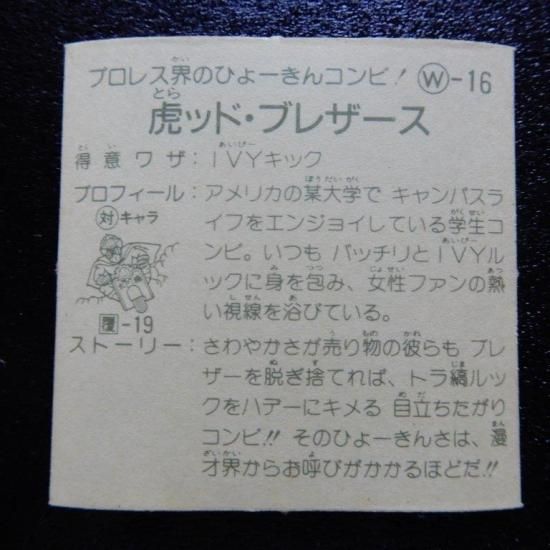 プロレス界のひょーきんコンビ! Ⓦ-16
虎ッド・ブレザース
得意ワザ:IVYキック
プロフィール:アメリカの某大学で キャンパスラ
対キャラ イフをエンジョイしている学生コ
ンビ。いつも バッチリとIVYル
ックに身を包み、女性ファンの熱
覆-19 い視線を浴びている。
ストーリー:さわやかさが売り物の彼らも ブレ
ザーを脱ぎ捨てれば、トラ縞ルッ
クをハデーにキメる 目立ちたがり
コンビ!! そのひょーきんさは、漫
才界からお呼びがかかるほどだ!!